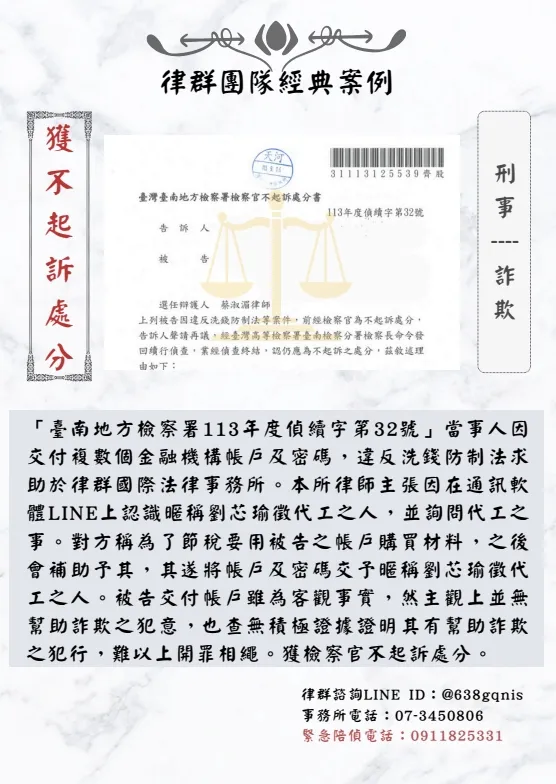 律群團隊經典案例
獲不起訴處分
刑事----詐欺
天河
31113125539齊股
臺灣臺南地方檢察署檢察官不起訴處分書
113年度偵續字第32號
告訴人
被告
選任辯護人 蔡淑湄律師
上列被告因違反洗錢防制法等案件,前經檢察官為不起訴處分,
告訴人聲請再議,經臺灣高等檢察署臺南檢察分署檢察長命令發
回續行偵查,業經偵查終結,認仍應為不起訴之處分,茲敘述理
由如下:
「臺南地方檢察署113年度偵續字第32號」當事人因
交付複數個金融機構帳戶及密碼,違反洗錢防制法求
助於律群國際法律事務所。本所律師主張因在通訊軟
體LINE上認識暱稱劉芯瑜徵代工之人,並詢問代工之
事。對方稱為了節稅要用被告之帳戶購買材料,之後
會補助予其,其遂將帳戶及密碼交予暱稱劉芯瑜徵代
工之人。被告交付帳戶雖為客觀事實,然主觀上並無
幫助詐欺之犯意,也查無積極證據證明其有幫助詐欺
之犯行,難以上開罪相繩。獲檢察官不起訴處分。
律群諮詢LINE ID:@638gqnis
事務所電話:07-3450806
緊急陪偵電話:0911825331